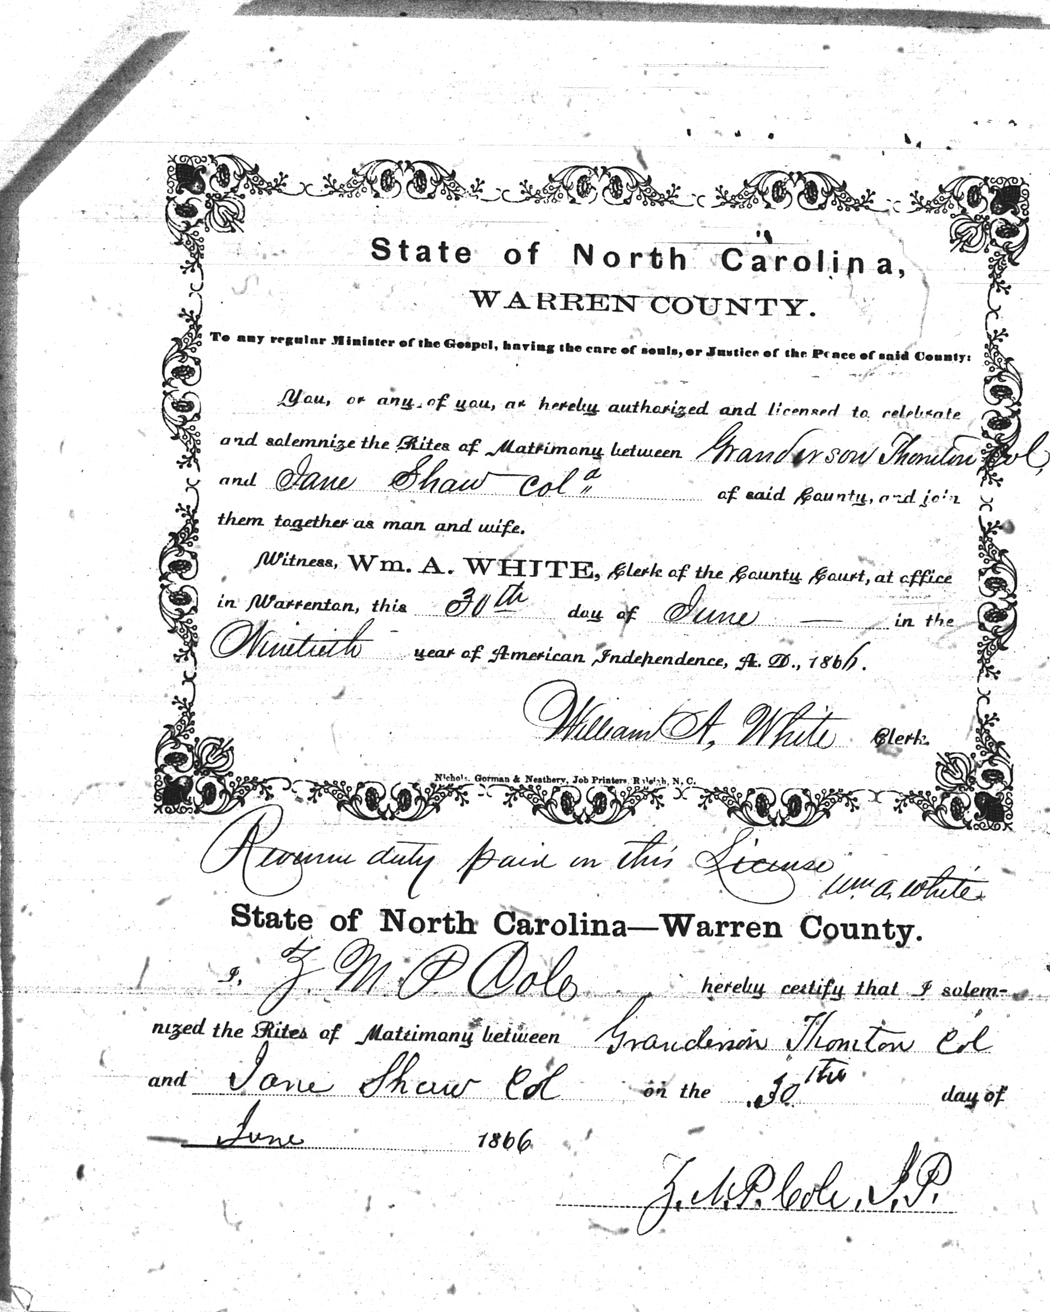 State of North Carolina,
WARREN COUNTY.
To any regular Minister of the Gospel, having the care of souls, or Justice of the Peace of said County:
You, or any of you, are hereby authorized and licensed to celebrate
and solemnize the Rites of Matrimony between Granderson Thornton Col,
and Jane Shaw Col d of said County, and join
them together as man and wife.
Witness, Wm. A. WHITE, Clerk of the County Court, at office
in Warrenton, this 30th day of June — in the
Ninetieth year of American Independence, A. D., 1866.
William A. White Clerk.
Nichols, Gorman & Neathery, Job Printers, Raleigh, N. C.
Revenue duty paid on this License
Wm. A. White
State of North Carolina—Warren County.
I, Z. M. P. Cole hereby certify that I solem-
nized the Rites of Matrimony between Granderson Thornton Col
and Jane Shaw Col on the 30th day of
June 1866
Z. M. P. Cole, J. P.